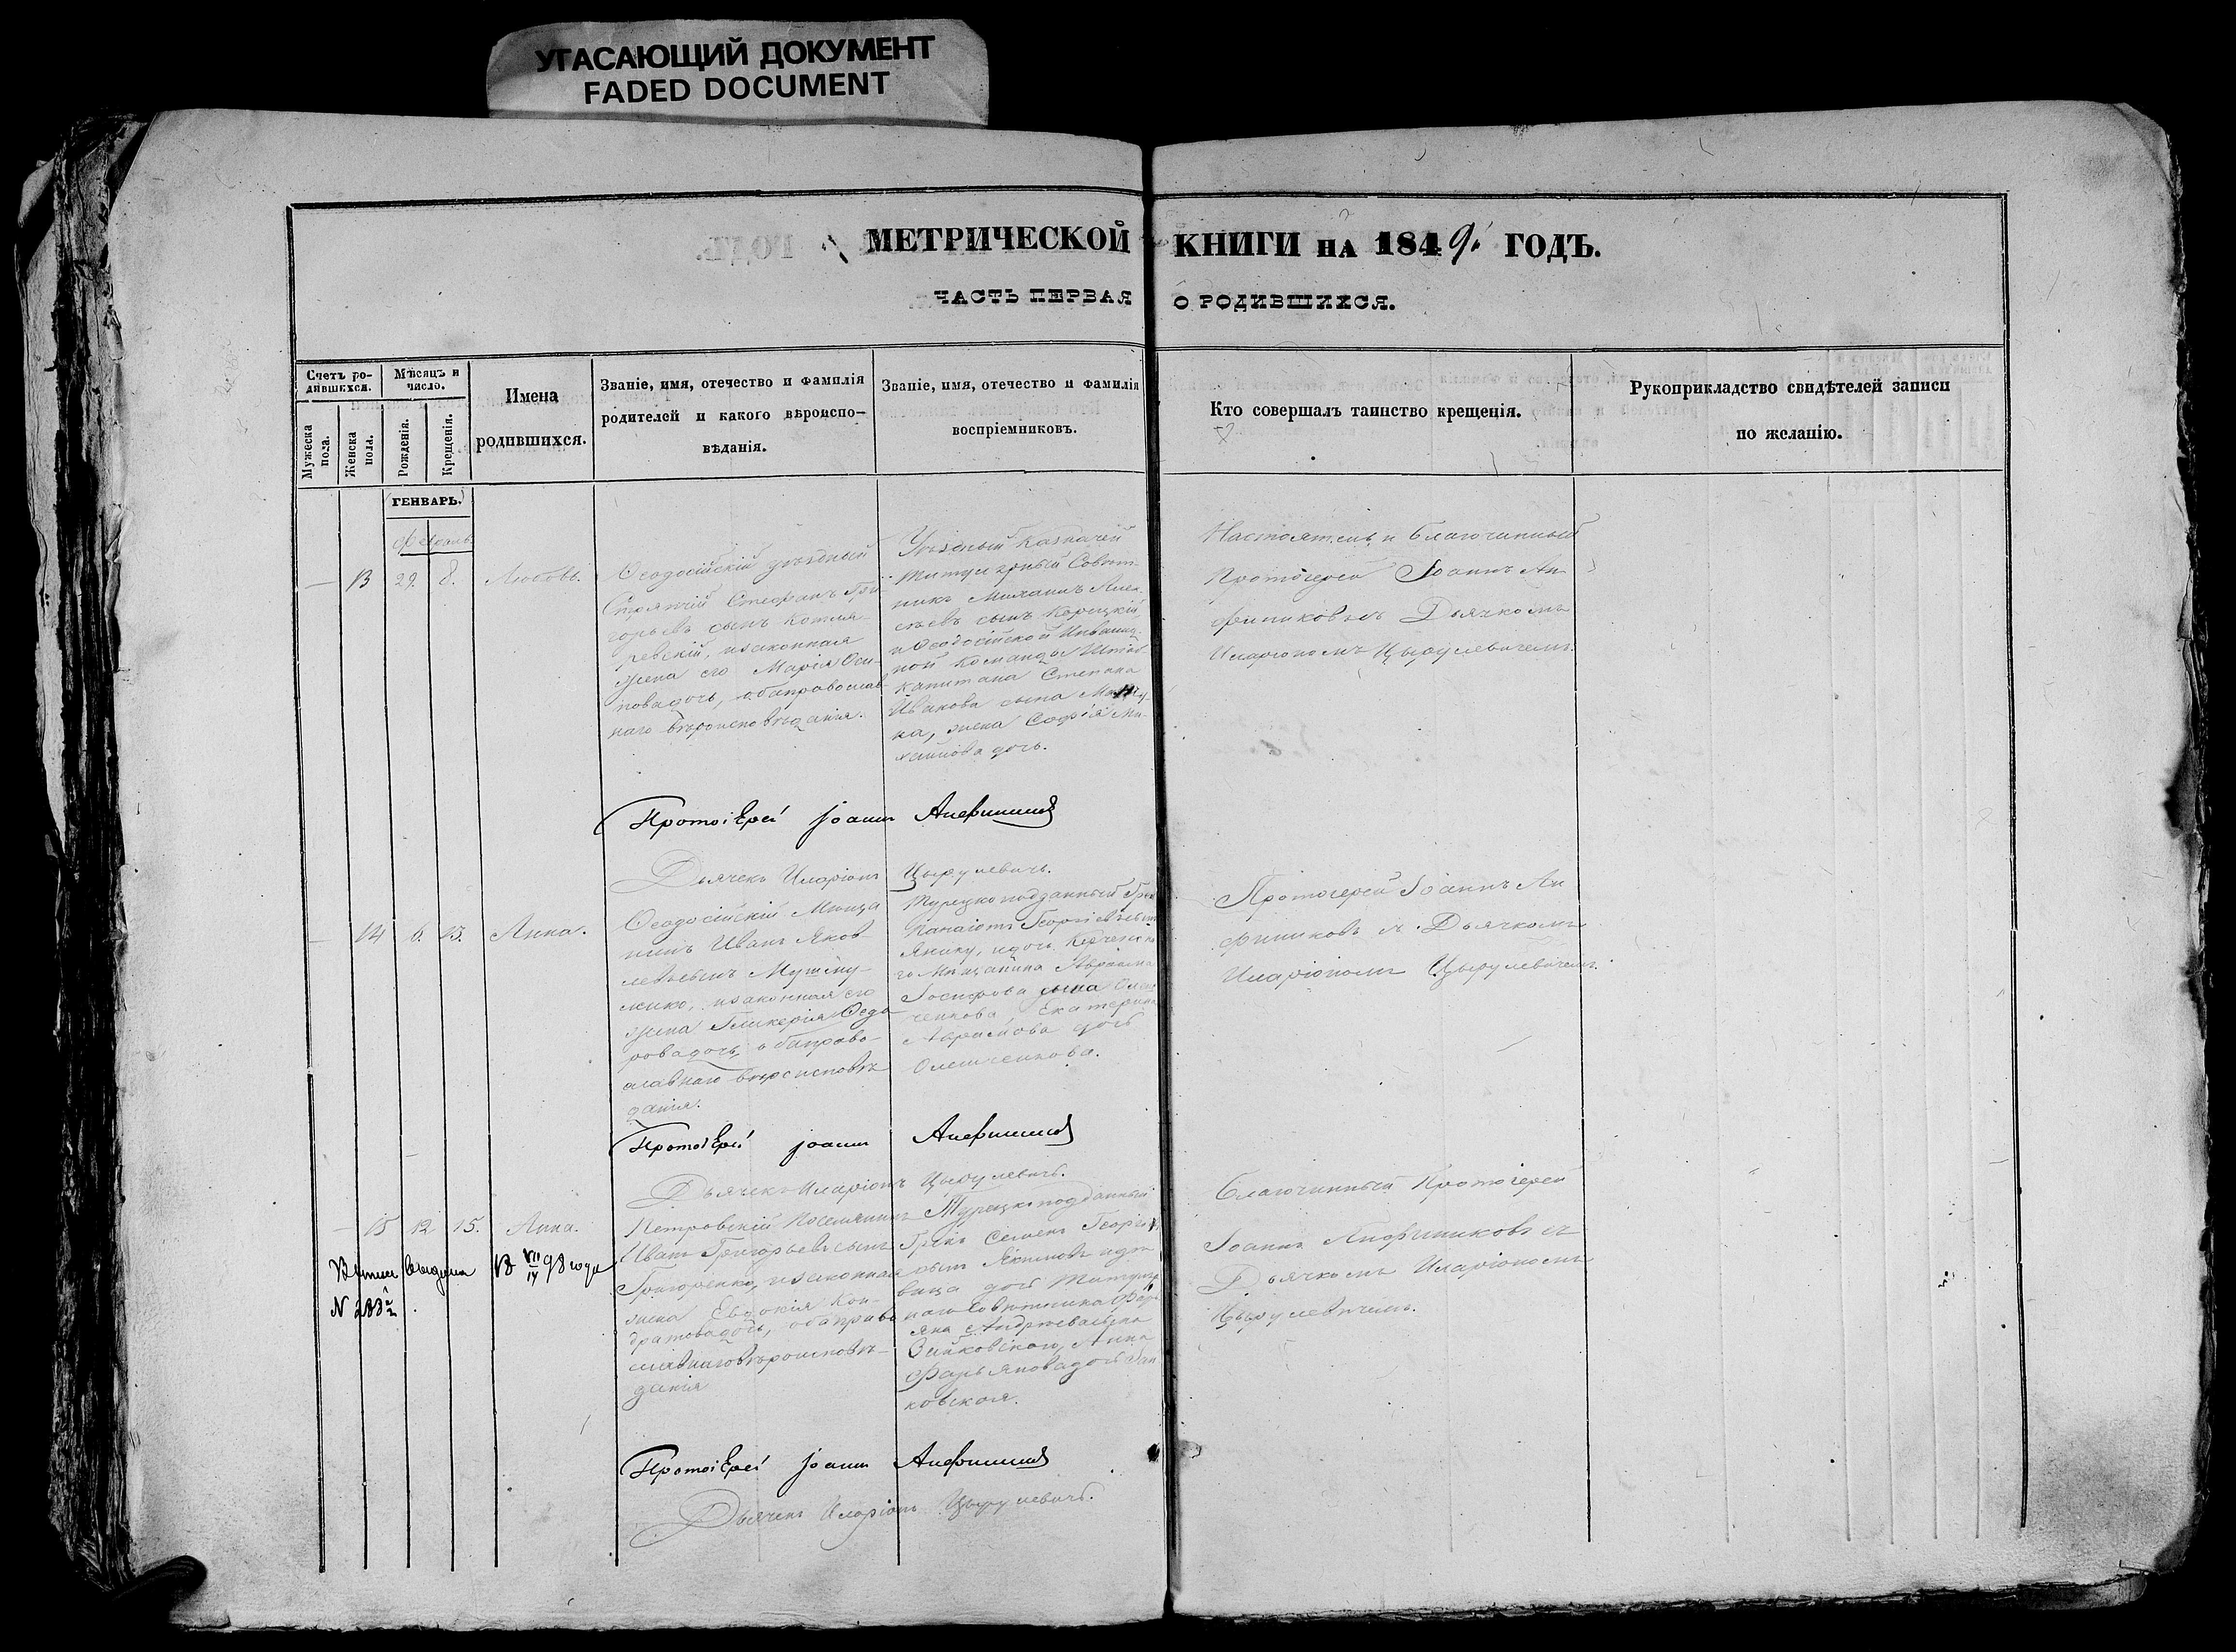 УГАСАЮЩИЙ ДОКУМЕНТ
FADED DOCUMENT
МЕТРИЧЕСКОЙ КНИГИ НА 1849. ГОДЪ.
ЧАСТЬ ПЕРВАЯ О РОДИВШИХСЯ.
Счетъ ро-
дившихся.
Мужеска
пола.
Женска
пола.
Мѣсяцъ и
число.
Рожденія.
Крещенія.
Имена
родившихся.
Званіе, имя, отечество и фамилія
родителей и какого вѣроиспо-
вѣданія.
Званіе, имя, отечество и фамилія
воспріемниковъ.
Кто совершалъ таинство крещенія.
Рукоприкладство свидѣтелей записи
по желанію.
ГЕНВАРЬ.
Февраль
13 29. 8. Любовь.
Ѳеодосійскій уѣздный
Стряпчій Стефанъ Гри-
горьевъ сынъ Котля-
ревскій, и законная
жена его Марія Оси-
пова дочь, оба православ-
наго вѣроисповѣданія.
Уѣздный Казначей
Титулярный Совѣт-
никъ Михаилъ Алек-
сѣевъ сынъ Корецкій
и Ѳеодосійской Инвалид-
ной Команды Штабъ
Капитана Степана
Иванова сына
на, жена Софія Ми-
хайлова дочь.
Настоятель и Благочинный
Протоіерей Іоаннъ Ан
финиковъ съ Дьячкомъ
Иларіономъ Цырулевичемъ.
ПротоіЕрей Іоаннъ Анфиниковъ
Дьячекъ Иларіонъ Цырулевичь.
14 6. 13. Анна.
Ѳеодосійскій Мѣща
нинъ Иванъ Яков-
левъ сынъ
и законная его
жена Гликерія Ѳедо
рова дочь, оба право-
славнаго вѣроисповѣ
данія.
Турецко подданный Грек
Панаіотъ Георгіевъ сын
Янику, и дочь Керченска
го Мѣщанина Авраама
Іосифова сына Олеш
ченкова, Екатерина
Авраамова дочь
Олешченкова.
Протоіерей Іоаннъ Ан
финиковъ съ Дьячкомъ
Иларіономъ Цырулевичемъ.
ПротоіЕрей Іоаннъ Анфиниковъ
Дьячекъ Иларіонъ Цырулевичь.
15 12 15. Анна.
Выпись выдана 13 VII/IV 98 года
N
Петровскій Поселянинъ
Иванъ Григорьевъ сынъ
Григоренко, и законная
жена Евдокія Кон-
дратова дочь, оба право
славнаго вѣроисповѣ-
данія
Турецкоподданный
Грекъ Семенъ Георгіевъ
сынъ и дѣ
вица дочь Титуляр
наго Совѣтника
Андреева сына
Анна
дочь
ковская.
Благочинный Протоіерей
Іоаннъ Анфиниковъ съ
Дьячкомъ Иларіономъ
Цырулевичемъ.
ПротоіЕрей Іоаннъ Анфиниковъ
Дьячекъ Иларіонъ Цырулевичь.